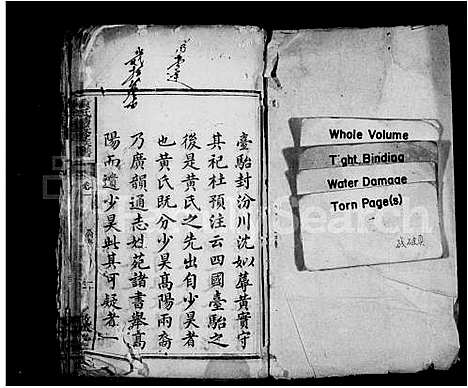 臺駘封汾川沈姒蓐黄實守
其祀杜預注云四國臺駘之
後是黄氏之先出自少昊者
也黄氏既分少昊高陽兩裔
乃廣韻通志姓苑諸書舉高
陽而遺少昊此其可疑者
Whole Volume
Tight Binding
Water Damage
Torn Page(s)